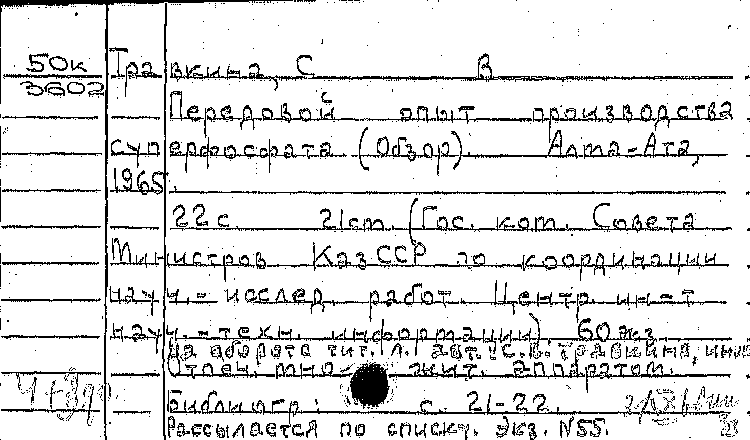 50к Травкина, С В
3602
Передовой опыт производства
суперфосфата (Обзор). Алма-Ата,
1965.
22 с 21 cm. (Гос. ком. Совета
Министров КазССР по координации
науч.-исслед. работ. Центр. ин-т
науч.-техн. информации) 60 экз.
На обороте тит. л. авт.: С.В. Травкина,
Отпеч. множит. аппаратом.
Библиогр: с. 21-22.
Рассылается по списку. Экз. №55.